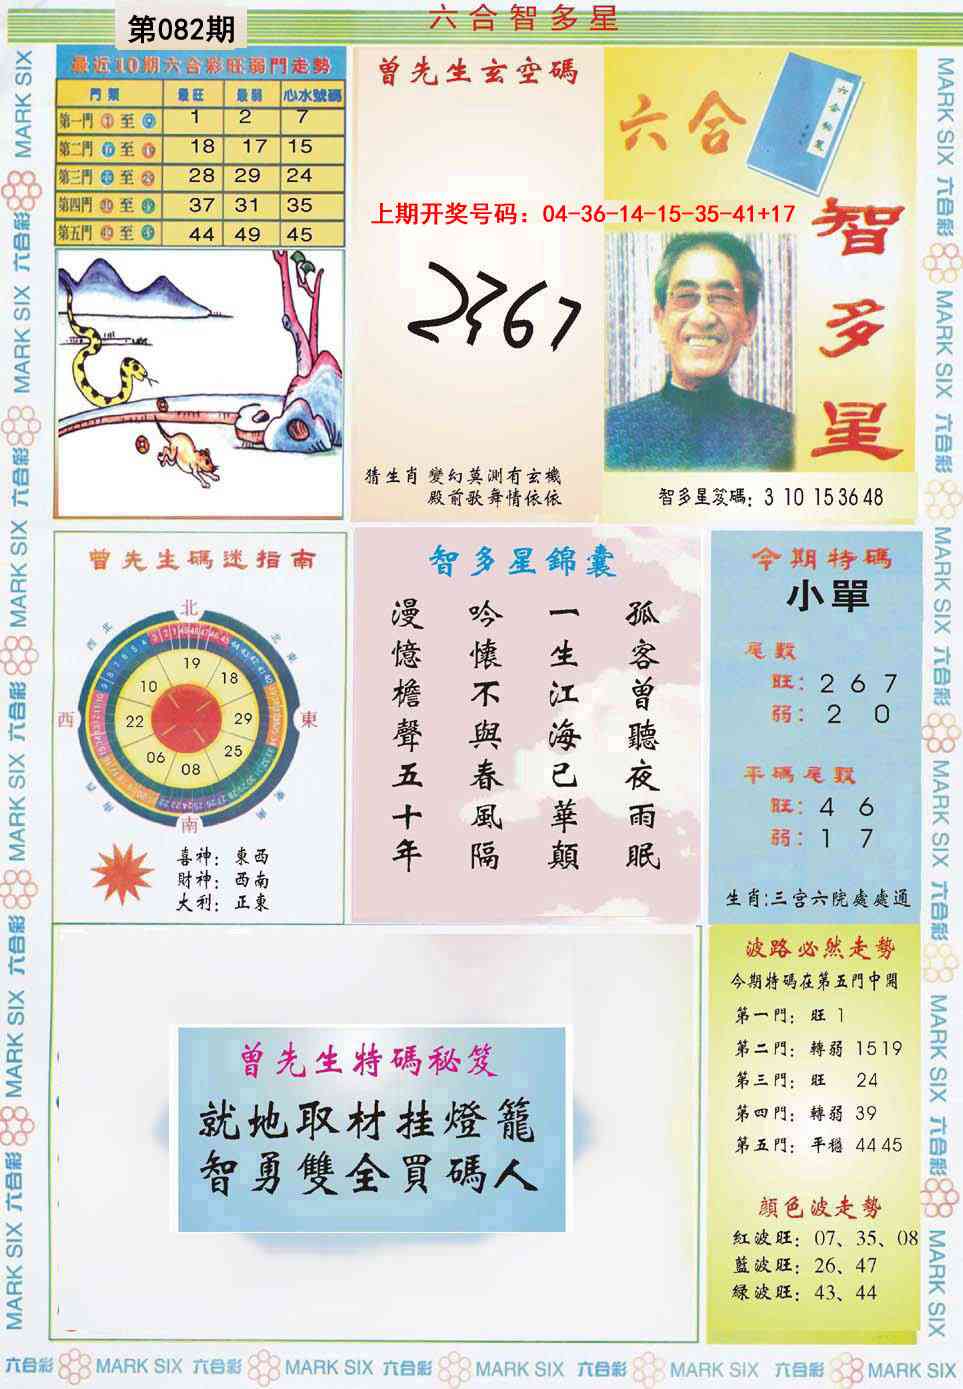 六合智多星
第082期
最近10期六合彩旺弱門走勢
門類 最旺 最弱 心水號碼
第一門 至 1 2 7
第二門 至 18 17 15
第三門 至 28 29 24
第四門 至 37 31 35
第五門 至 44 49 45
曾先生玄空碼
上期开奖号码：04-36-14-15-35-41+17
2367
猜生肖 變幻莫測有玄機
殿前歌舞情依依
六合
智多星
智多星笈碼：3 10 15 36 48
曾先生碼迷指南
北
西北
東北
西
東
南
19
18
10
29
22
25
06
08
喜神：東西
財神：西南
大利：正東
智多星錦囊
孤客曾聽夜雨眠
一生江海已華顛
吟懷不與春風隔
漫憶檐聲五十年
今期特碼
小單
尾數
旺：2 6 7
弱：2 0
平碼尾數
旺：4 6
弱：1 7
生肖：三宫六院處處通
曾先生特碼秘笈
就地取材挂燈籠
智勇雙全買碼人
波路必然走勢
今期特碼在第五門中開
第一門：旺 1
第二門：轉弱 15 19
第三門：旺 24
第四門：轉弱 39
第五門：平穩 44 45
顔色波走勢
紅波旺：07、35、08
藍波旺：26、47
綠波旺：43、44
MARK SIX 六合彩 MARK SIX 六合彩 MARK SIX 六合彩 MARK SIX 六合彩 MARK SIX